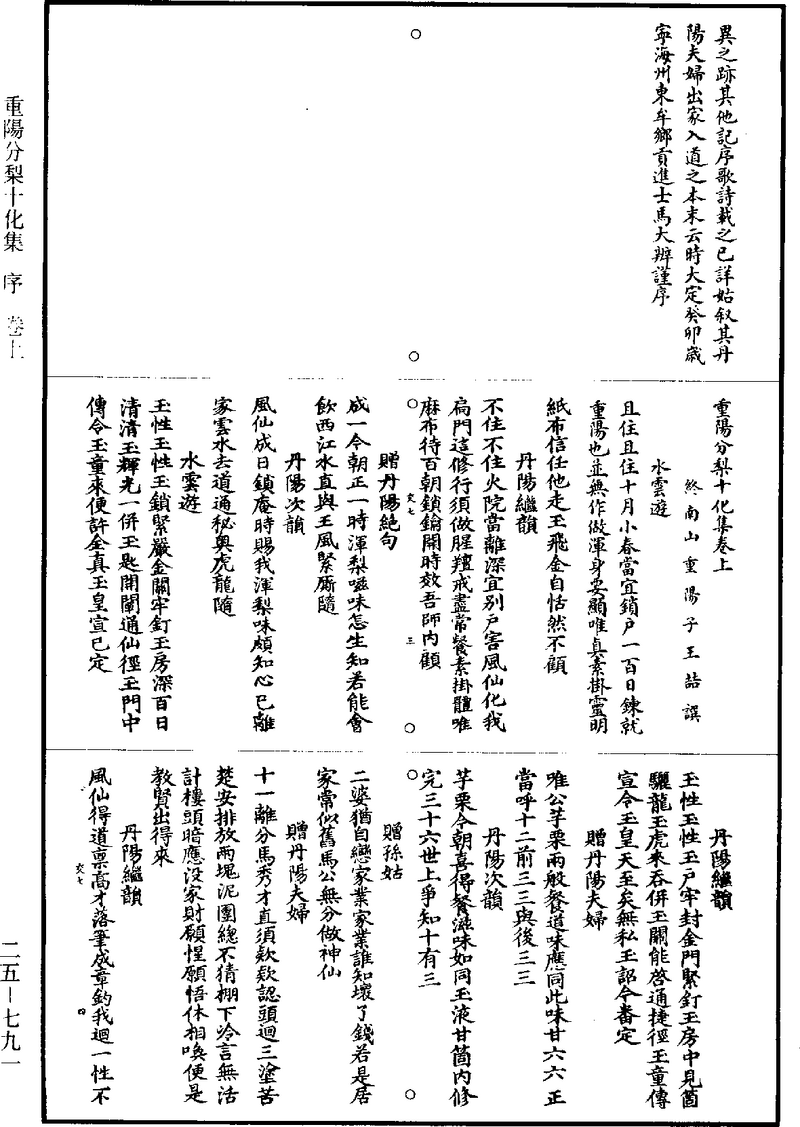 重陽分梨十化集　序　卷上
異之跡其他記序歌詩載之已詳姑叙其丹
陽夫婦出家入道之本末云時大定癸卯歲
寧海州東牟鄉貢進士馬大辨謹序
重陽分梨十化集卷上
終南山重陽子王嚞譔
水雲遊
且住且住十月小春當宜鎖戶一百日鍊就
重陽也並無作做渾身要顯唯真素掛靈明
紙布信任他走玉飛金自恬然不顧
丹陽繼韻
不住不住火院當離深宜別戶害風仙化我
扃門這修行須做腥羶戒盡常餐素掛體唯
麻布待百朝鎖鑰開時效吾師內顧
交七
三
贈丹陽絕句
成一今朝正一時渾梨嗞味怎生知若能會
飲西江水直與王風緊廝隨
丹陽次韻
風仙成日鎖庵時賜我渾梨味頗知心已離
家雲水去道通秘奧虎龍隨
水雲遊
玉性玉性玉鎖緊嚴金關牢釘玉房深百日
清清玉輝光一併玉匙開闡通仙徑玉門中
傳令玉童來便許全真玉皇宣已定
丹陽繼韻
玉性玉性玉戶牢封金門緊釘玉房中見箇
驪龍玉虎來吞併玉關能啓通捷徑玉童傳
宣令玉皇天至矣無私玉詔令番定
贈丹陽夫婦
唯公芋栗兩般餐道味應同此味甘六六正
當呼十二前三三與後三三
丹陽次韻
芋栗今朝喜得餐滋味如同玉液甘箇內修
完三十六世上爭知十有三
贈孫姑
二婆猶自戀家業家業誰知壞了錢若是居
家常似舊馬公無分做神仙
贈丹陽夫婦
十一離分馬秀才直須欵欵認頭迴三塗苦
楚安排放兩塊泥團總不猜棚下泠言無活
計樓頭暗應沒家財願惺願悟休相喚便是
教賢出得來
丹陽繼韻
風仙得道禀高才落筆成章釣我迴一性不
交七
四
二五—七九一